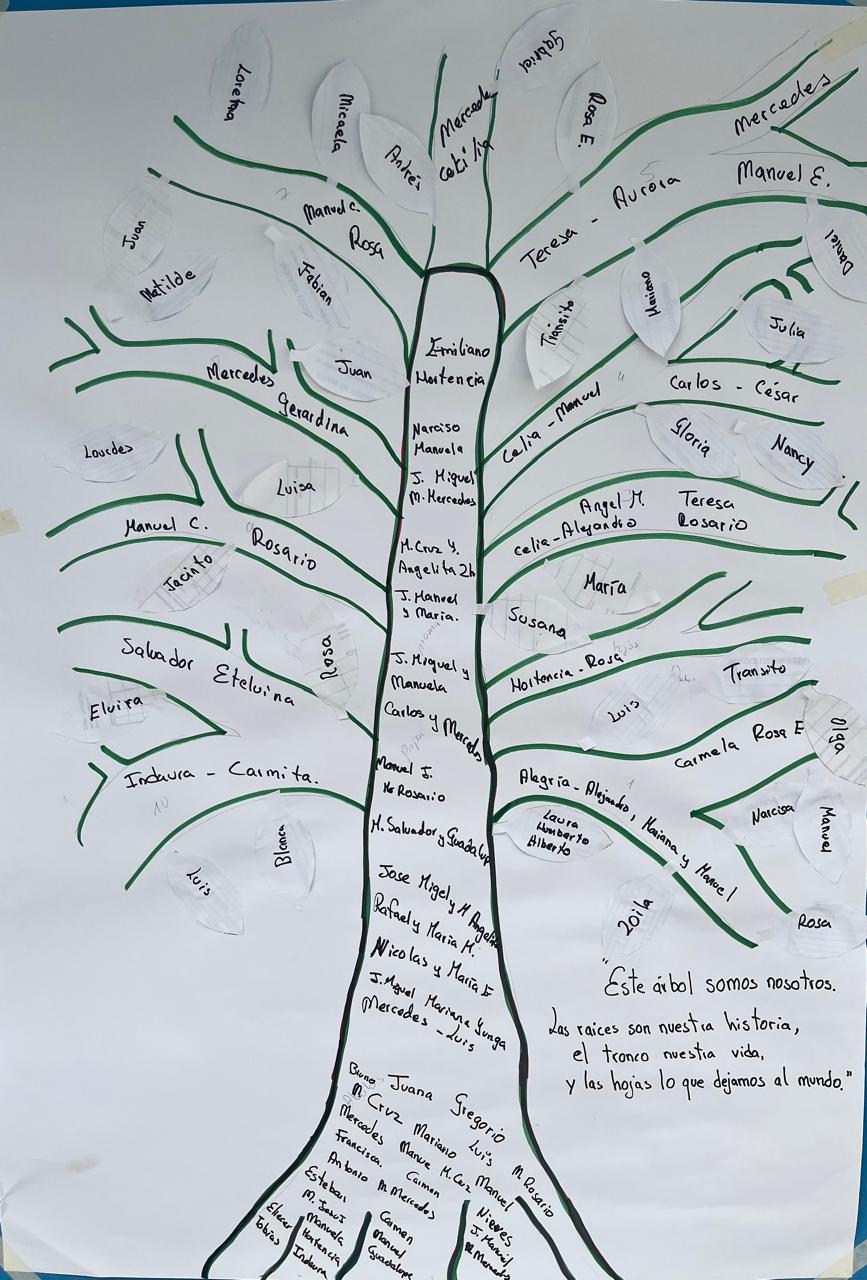 Lorena
Micaela
Andrés
Mercede
Cecilia
Gabriel
Rosa E.
Mercedes
Teresa - Aurora
Manuel E.
Manuel C.
Rosa
Juan
Matilde
Fabian
Juan
Transito
Mariano
Daniel
Julia
Mercedes
Gerardina
Emiliano
Hortencia
Celia - Manuel
Carlos - César
Narciso
Manuela
Gloria
Nancy
Lourdes
Luisa
J. Miguel
M. Mercedes
Angel M.
Teresa
Celia-Alejandro
Rosario
Manuel C.
Rosario
Jacinto
M. Cruz y.
Angelita 2h
J. Manuel
y Maria.
María
Susana
Salvador
Etelvina
Rosa
Elvira
J. Miguel y
Manuela
Hortencia - Rosa
hijos
Luis
Transito
Carlos y Mercedes
Carmela Rosa E
Olga
Indaura - Carmita.
10
Manuel J.
Ma Rosario
Alegría - Alejandro, Mariana y Manuel
Laura
Humberto
Alberto
Narcisa
Manuel
Rosa
Zoila
Luis
Blanca
M. Salvador y Guadalup
Jose Migel y M Angelita
Rafael y Maria M.
Nicolas y María E
J. Miguel Mariana Yunga
Mercedes - Luis
"Este árbol somos nosotros.
Las raices son nuestra historia,
el tronco nuestra vida,
y las hojas lo que dejamos al mundo."
Bruno Juana Gregorio
M. Cruz Mariano Luis M. Rosario
Mercedes Manue M. Cruz Manuel
Francisca. Carmen
Antonio M. Mercedes
Esteban
M. Jesus
Manuela
Hortencia
Indaura
Eliecer
Tobias
Carmen
Manuel
Guadalupe
Nieves
J. Manuel
M. Mercedes